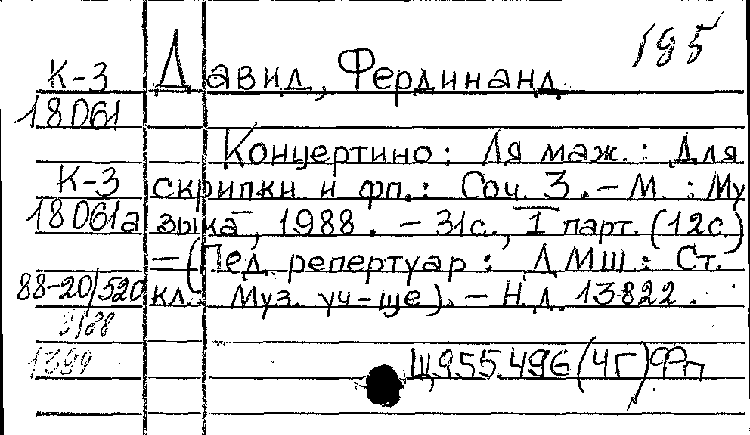 195
К-3 Давид, Фердинанд
18061
Концертино: Ля маж.: Для
К-3 скрипки и фп.: Соч. 3. – М.: Му
18061а зыка, 1988. – 31с., 1 парт. (12с.)
– (Пед. репертуар: ДМШ: Ст.
88-20/520 кл.: Муз. уч-ще). – Н.д. 13822.
3/88
1399 Щ955.496(4Г)Фп